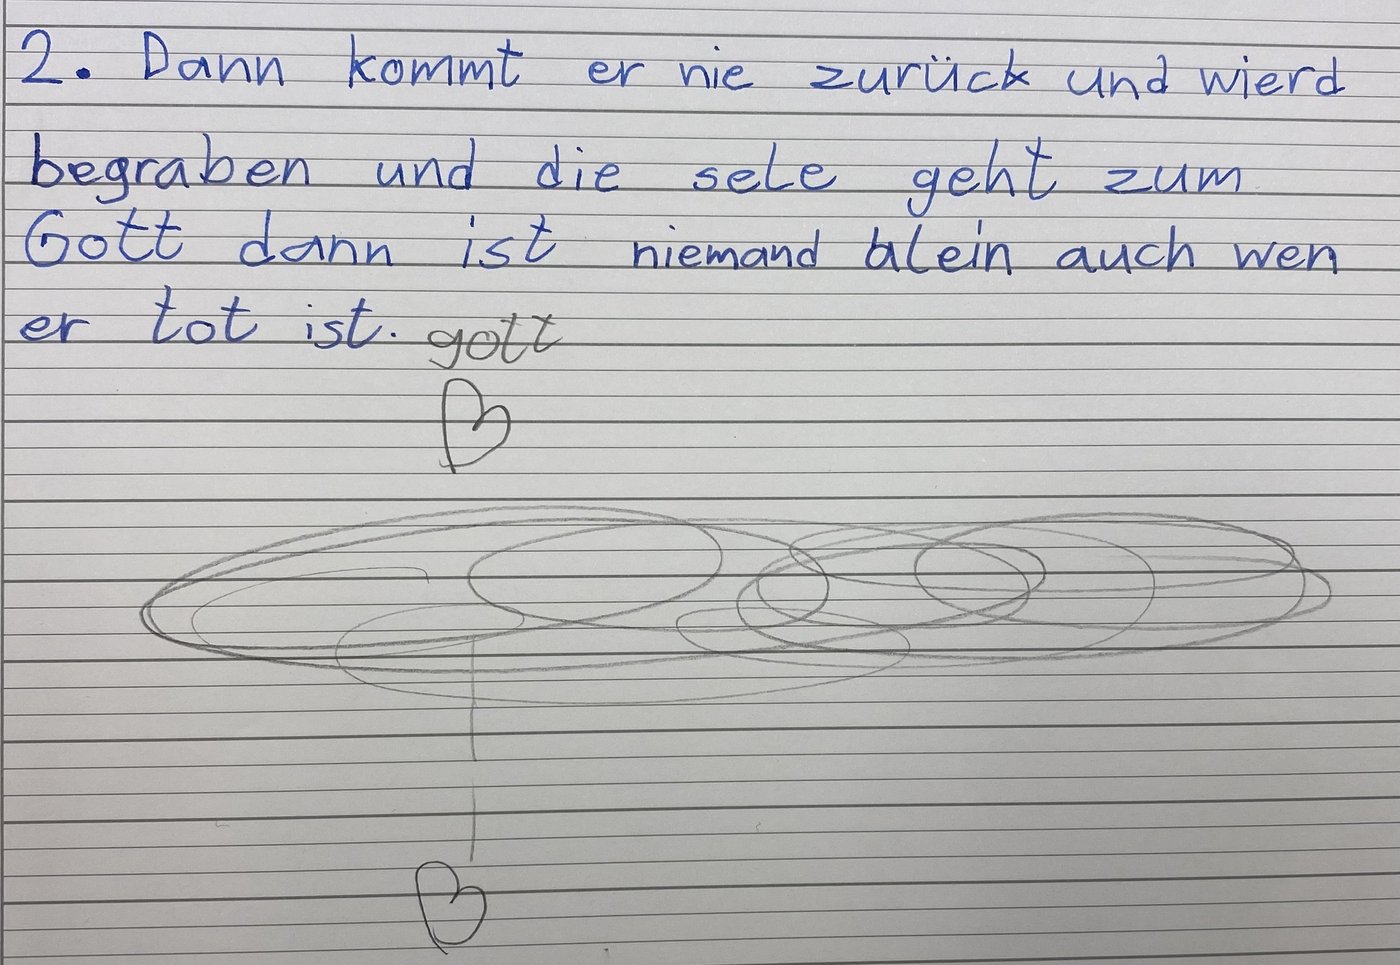 2. Dann kommt er nie zurück und wierd
begraben und die sele geht zum
Gott dann ist niemand alein auch wen
er tot ist. gott